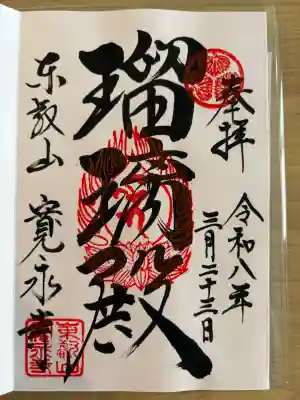 奉拝
令和八年
三月二十三日
瑠璃殿
東叡山
寛永寺